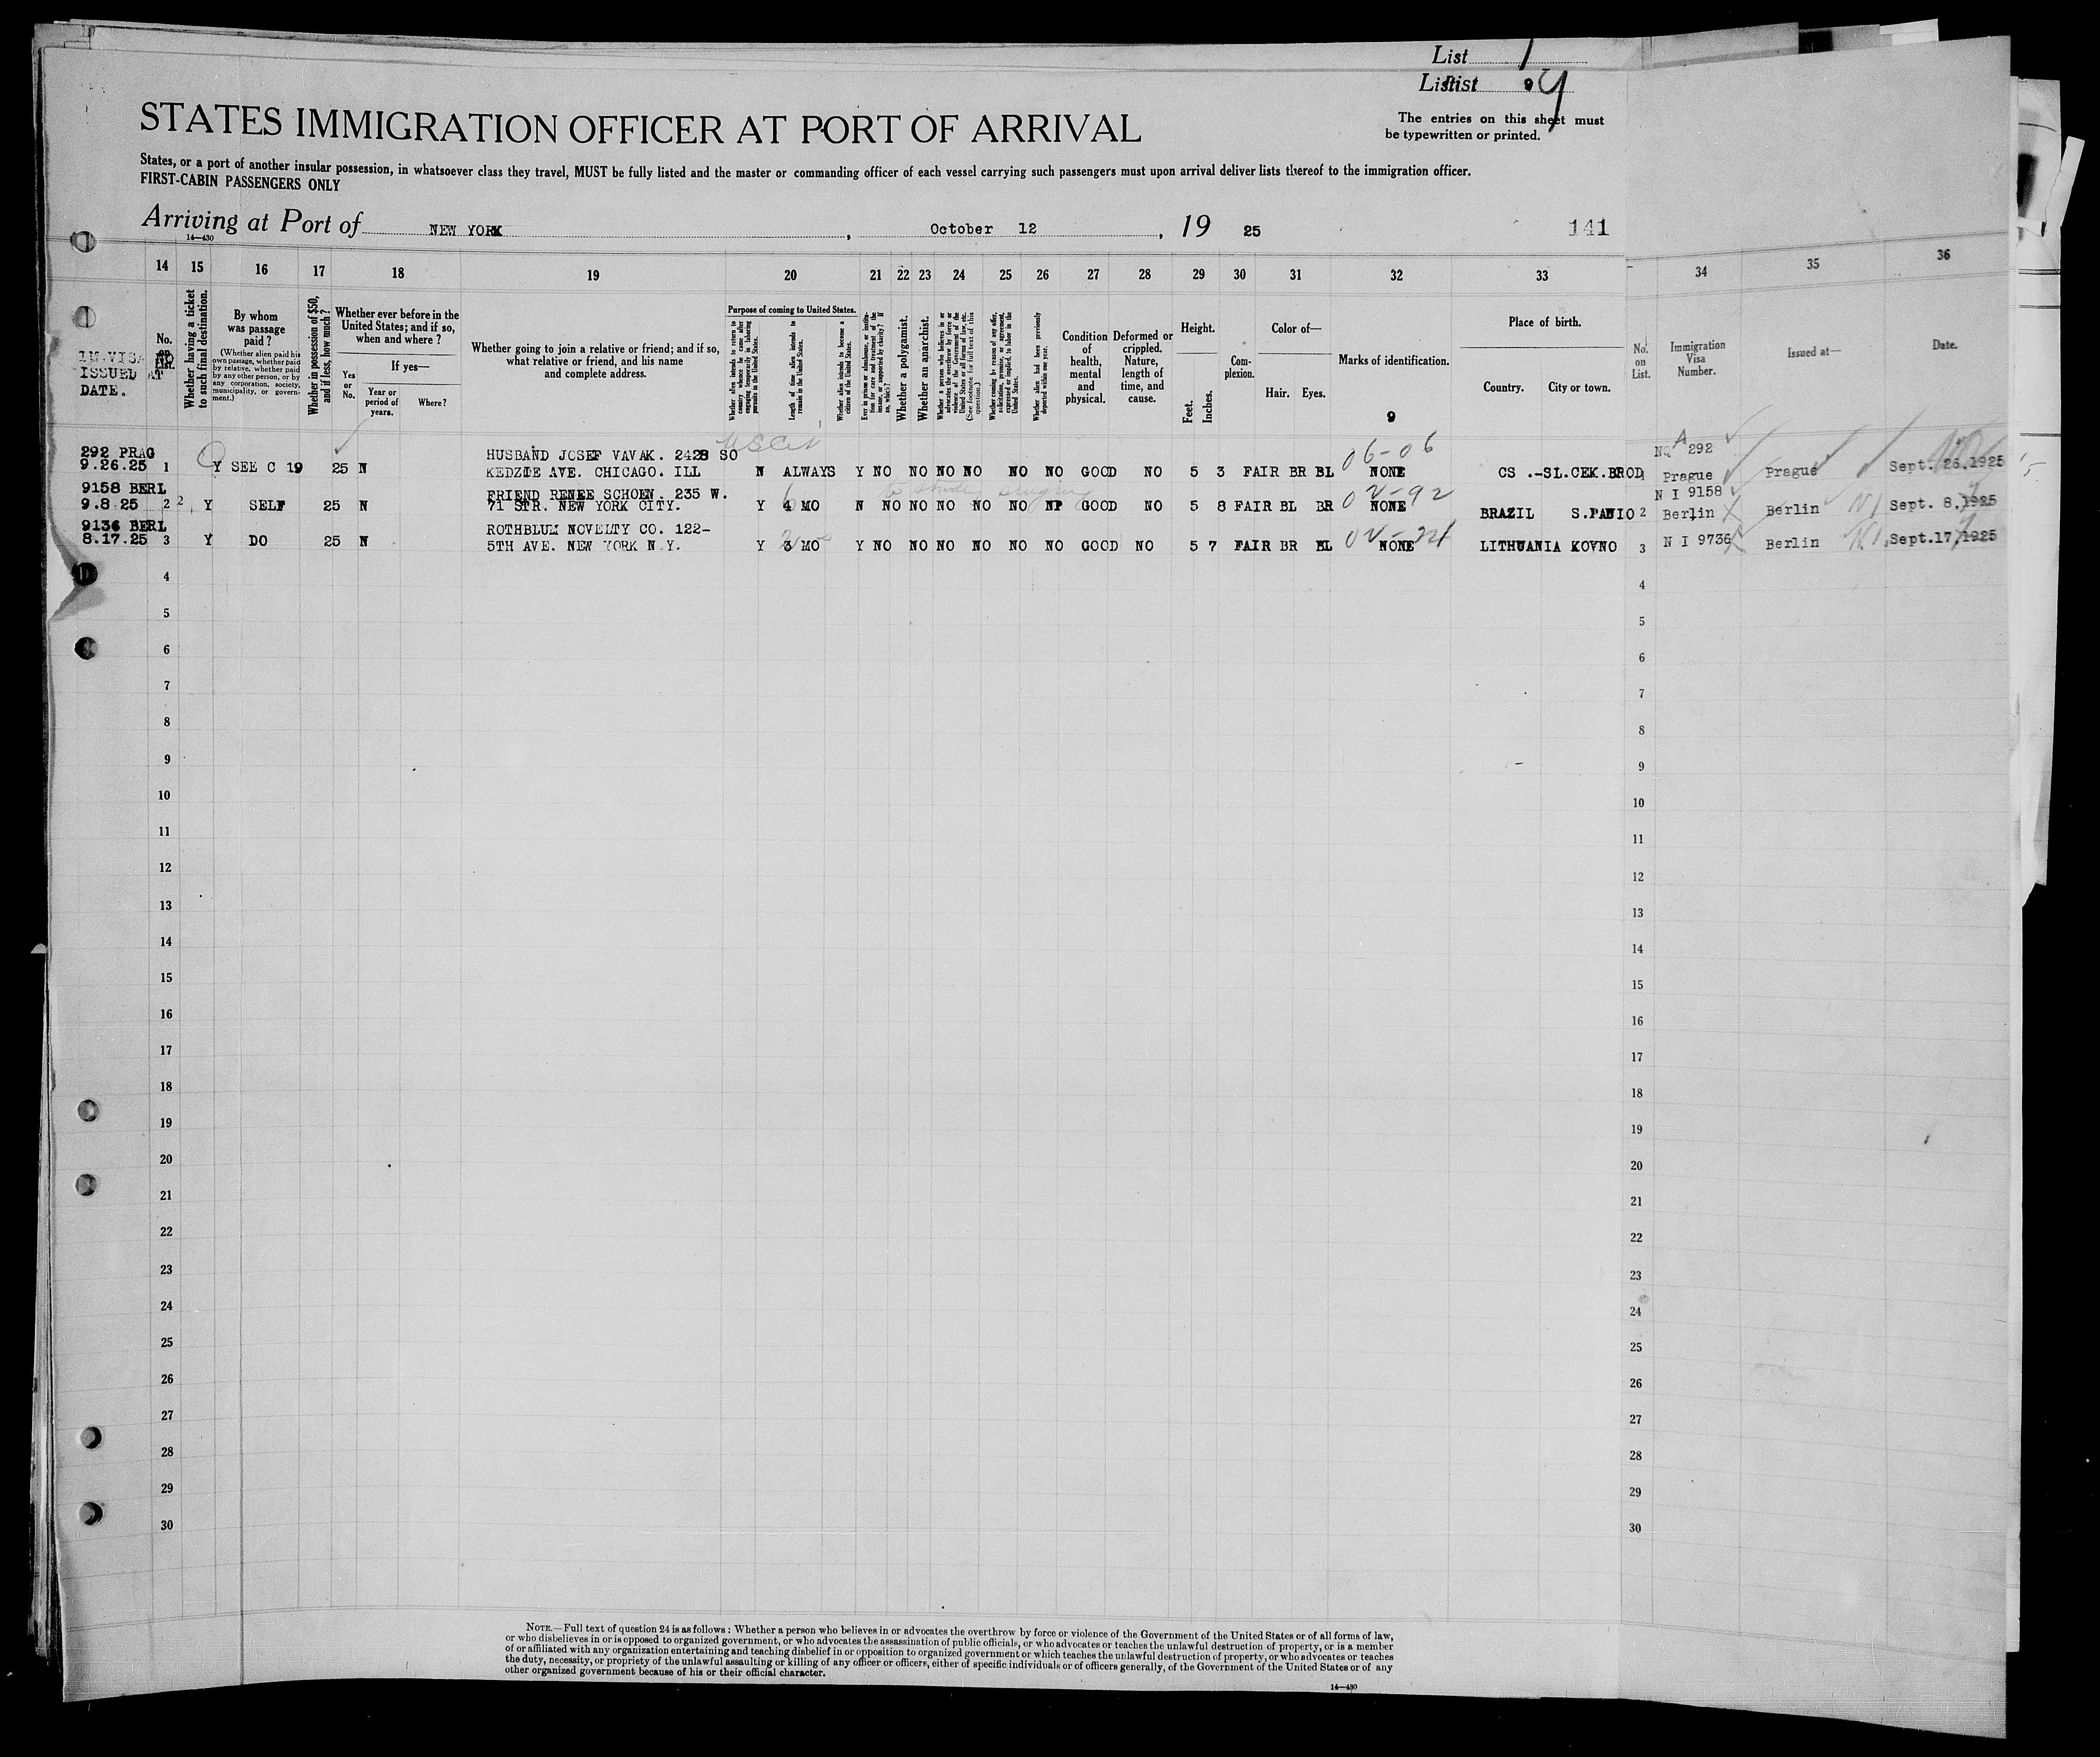 List 1
List 9
STATES IMMIGRATION OFFICER AT PORT OF ARRIVAL
The entries on this sheet must
be typewritten or printed.
States, or a port of another insular possession, in whatsoever class they travel, MUST be fully listed and the master or commanding officer of each vessel carrying such passengers must upon arrival deliver lists thereof to the immigration officer.
FIRST-CABIN PASSENGERS ONLY
Arriving at Port of NEW YORK, October 12, 19 25 141
14—430
14 15 16 17 18 19 20 21 22 23 24 25 26 27 28 29 30 31 32 33 34 35 36
IM.VISA NO
ISSUED AT
DATE.
No. on List.
Whether having a ticket to such final destination.
By whom was passage paid?
(Whether alien paid his own passage, whether paid by relative, whether paid by any other person, or by any corporation, society, municipality, or government.)
Whether in possession of $50, and if less, how much?
Whether ever before in the United States; and if so, when and where?
Yes or No.
If yes—
Year or period of years.
Where?
Whether going to join a relative or friend; and if so, what relative or friend, and his name and complete address.
Purpose of coming to United States.
Whether alien intends to return to country whence he came after engaging temporarily in laboring pursuits in the United States.
Length of time alien intends to remain in the United States.
Whether alien intends to become a citizen of the United States.
Ever in prison or almshouse, or institution for care and treatment of the insane, or supported by charity? If so, which?
Whether a polygamist.
Whether an anarchist.
Whether a person who believes in or advocates the overthrow by force or violence of the Government of the United States or all forms of law, etc. (See footnote for full text of this question.)
Whether coming by reason of any offer, solicitation, promise, or agreement, expressed or implied, to labor in the United States.
Whether alien had been previously deported within one year.
Condition of health, mental and physical.
Deformed or crippled. Nature, length of time, and cause.
Height.
Feet.
Inches.
Complexion.
Color of—
Hair. Eyes.
Marks of identification.
9
Place of birth.
Country. City or town.
No. on List.
Immigration Visa Number.
Issued at—
Date.
USCit
292 PRAG HUSBAND JOSEF VAVAK. 2428 SO 06-06 NQ 292
9.26.25 1 Y SEE C 19 25 N KEDZIE AVE. CHICAGO. ILL N ALWAYS Y NO NO NO NO NO NO GOOD NO 5 3 FAIR BR BL NONE CS.-SL.CEK.BROD 1 Prague Prague Sept. 26.1925
9158 BERL FRIEND RENEE SCHOEN. 235 W. 6 to study singing 0V-92 N I 9158
9.8.25 2 2 Y SELF 25 N 71 STR. NEW YORK CITY. Y 4 MO N NO NO NO NO NO NO GOOD NO 5 8 FAIR BL BR NONE BRAZIL S.PAULO 2 Berlin Berlin NI Sept. 8,1925
9136 BERL ROTHBLUM NOVELTY CO. 122- 0V-24 N I 9736
8.17.25 3 Y DO 25 N 5TH AVE. NEW YORK N.Y. Y 3 MO Y NO NO NO NO NO NO GOOD NO 5 7 FAIR BR BL NONE LITHUANIA KOVNO 3 Berlin NI Sept.17,1925
4 4
5 5
6 6
7 7
8 8
9 9
10 10
11 11
12 12
13 13
14 14
15 15
16 16
17 17
18 18
19 19
20 20
21 21
22 22
23 23
24 24
25 25
26 26
27 27
28 28
29 29
30 30
NOTE.—Full text of question 24 is as follows: Whether a person who believes in or advocates the overthrow by force or violence of the Government of the United States or of all forms of law,
or who disbelieves in or is opposed to organized government, or who advocates the assassination of public officials, or who advocates or teaches the unlawful destruction of property, or is a member
of or affiliated with any organization entertaining and teaching disbelief in or opposition to organized government or which teaches the unlawful destruction of property, or who advocates or teaches
the duty, necessity, or propriety of the unlawful assaulting or killing of any officer or officers, either of specific individuals or of officers generally, of the Government of the United States or of any
other organized government because of his or their official character.
14—430